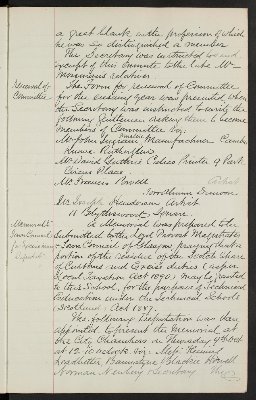 a great blank in the profession of which
he was so distinguished a member
The Secretary was instructed to send
excerpt of this minute to the late Mr
relatives
Renewal of
Committee
The Form for renewal of Committee
for the ensuing year was presented when
the Secretary was instructed to write the
following Gentlemen asking them to become
members of Committee viz:
Mr John Ingram Manufacturer
Rutherglen
Mr David Guthrie Glass Painter
Place
Mr Francis Powell Artist
Dunoon
Mr Joseph Henderson Artist
11 Blythswood Square.
Memorial
A Memorial was prepared to be
submitted to the Lord Provost Magistrates
Town Council of Glasgow praying that a
portion of the residue of the Scotch share
of Customs and Excise duties (under
Local Taxation Act 1890) may be granted
to this School, for the purposes of Technical
Education under the Technical Schools
(Scotland) Act 1887.
The following Deputation was then
appointed to present the Memorial, at
the City Chambers on Thursday
at 12.10 o'clock viz: Messrs Fleming
Leadbetter Blackie
Secretary